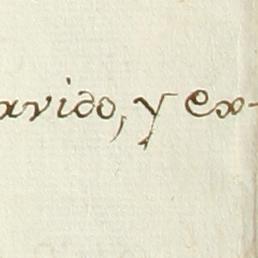 avido, y ex-